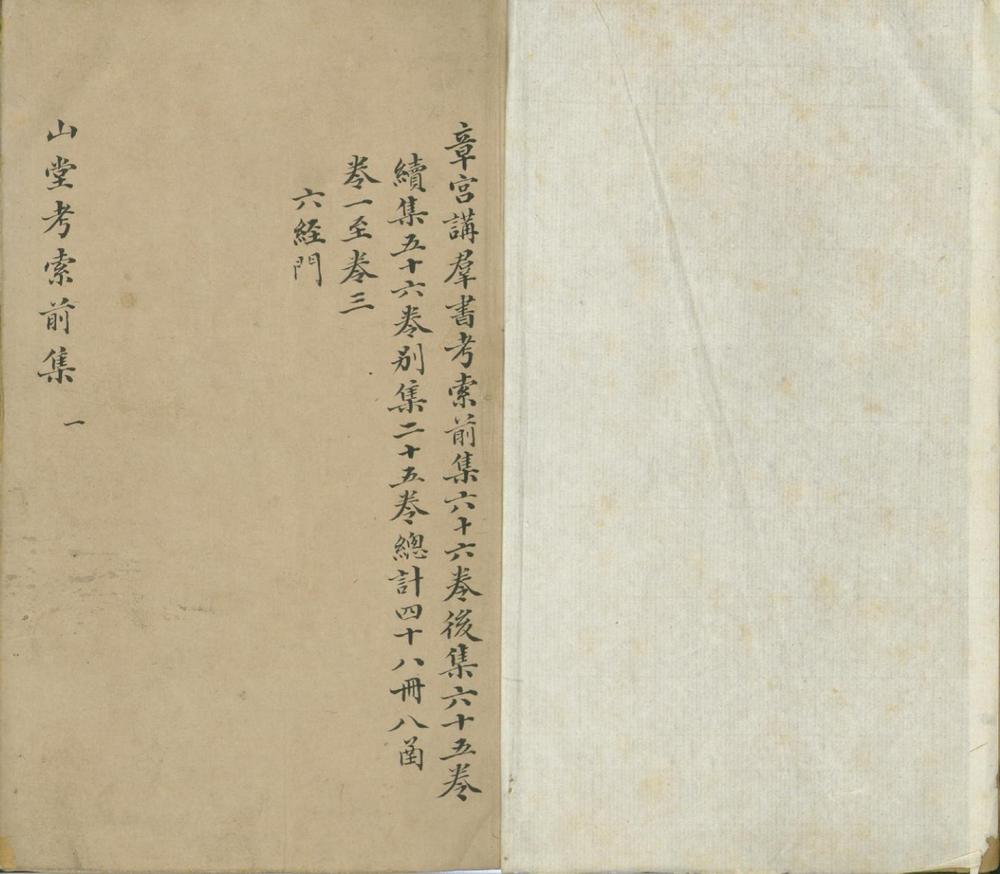 章宫講羣書考索前集六十六卷後集六十五卷
續集五十六卷别集二十五卷總計四十八冊八函
卷一至卷三
六經門
山堂考索前集 一